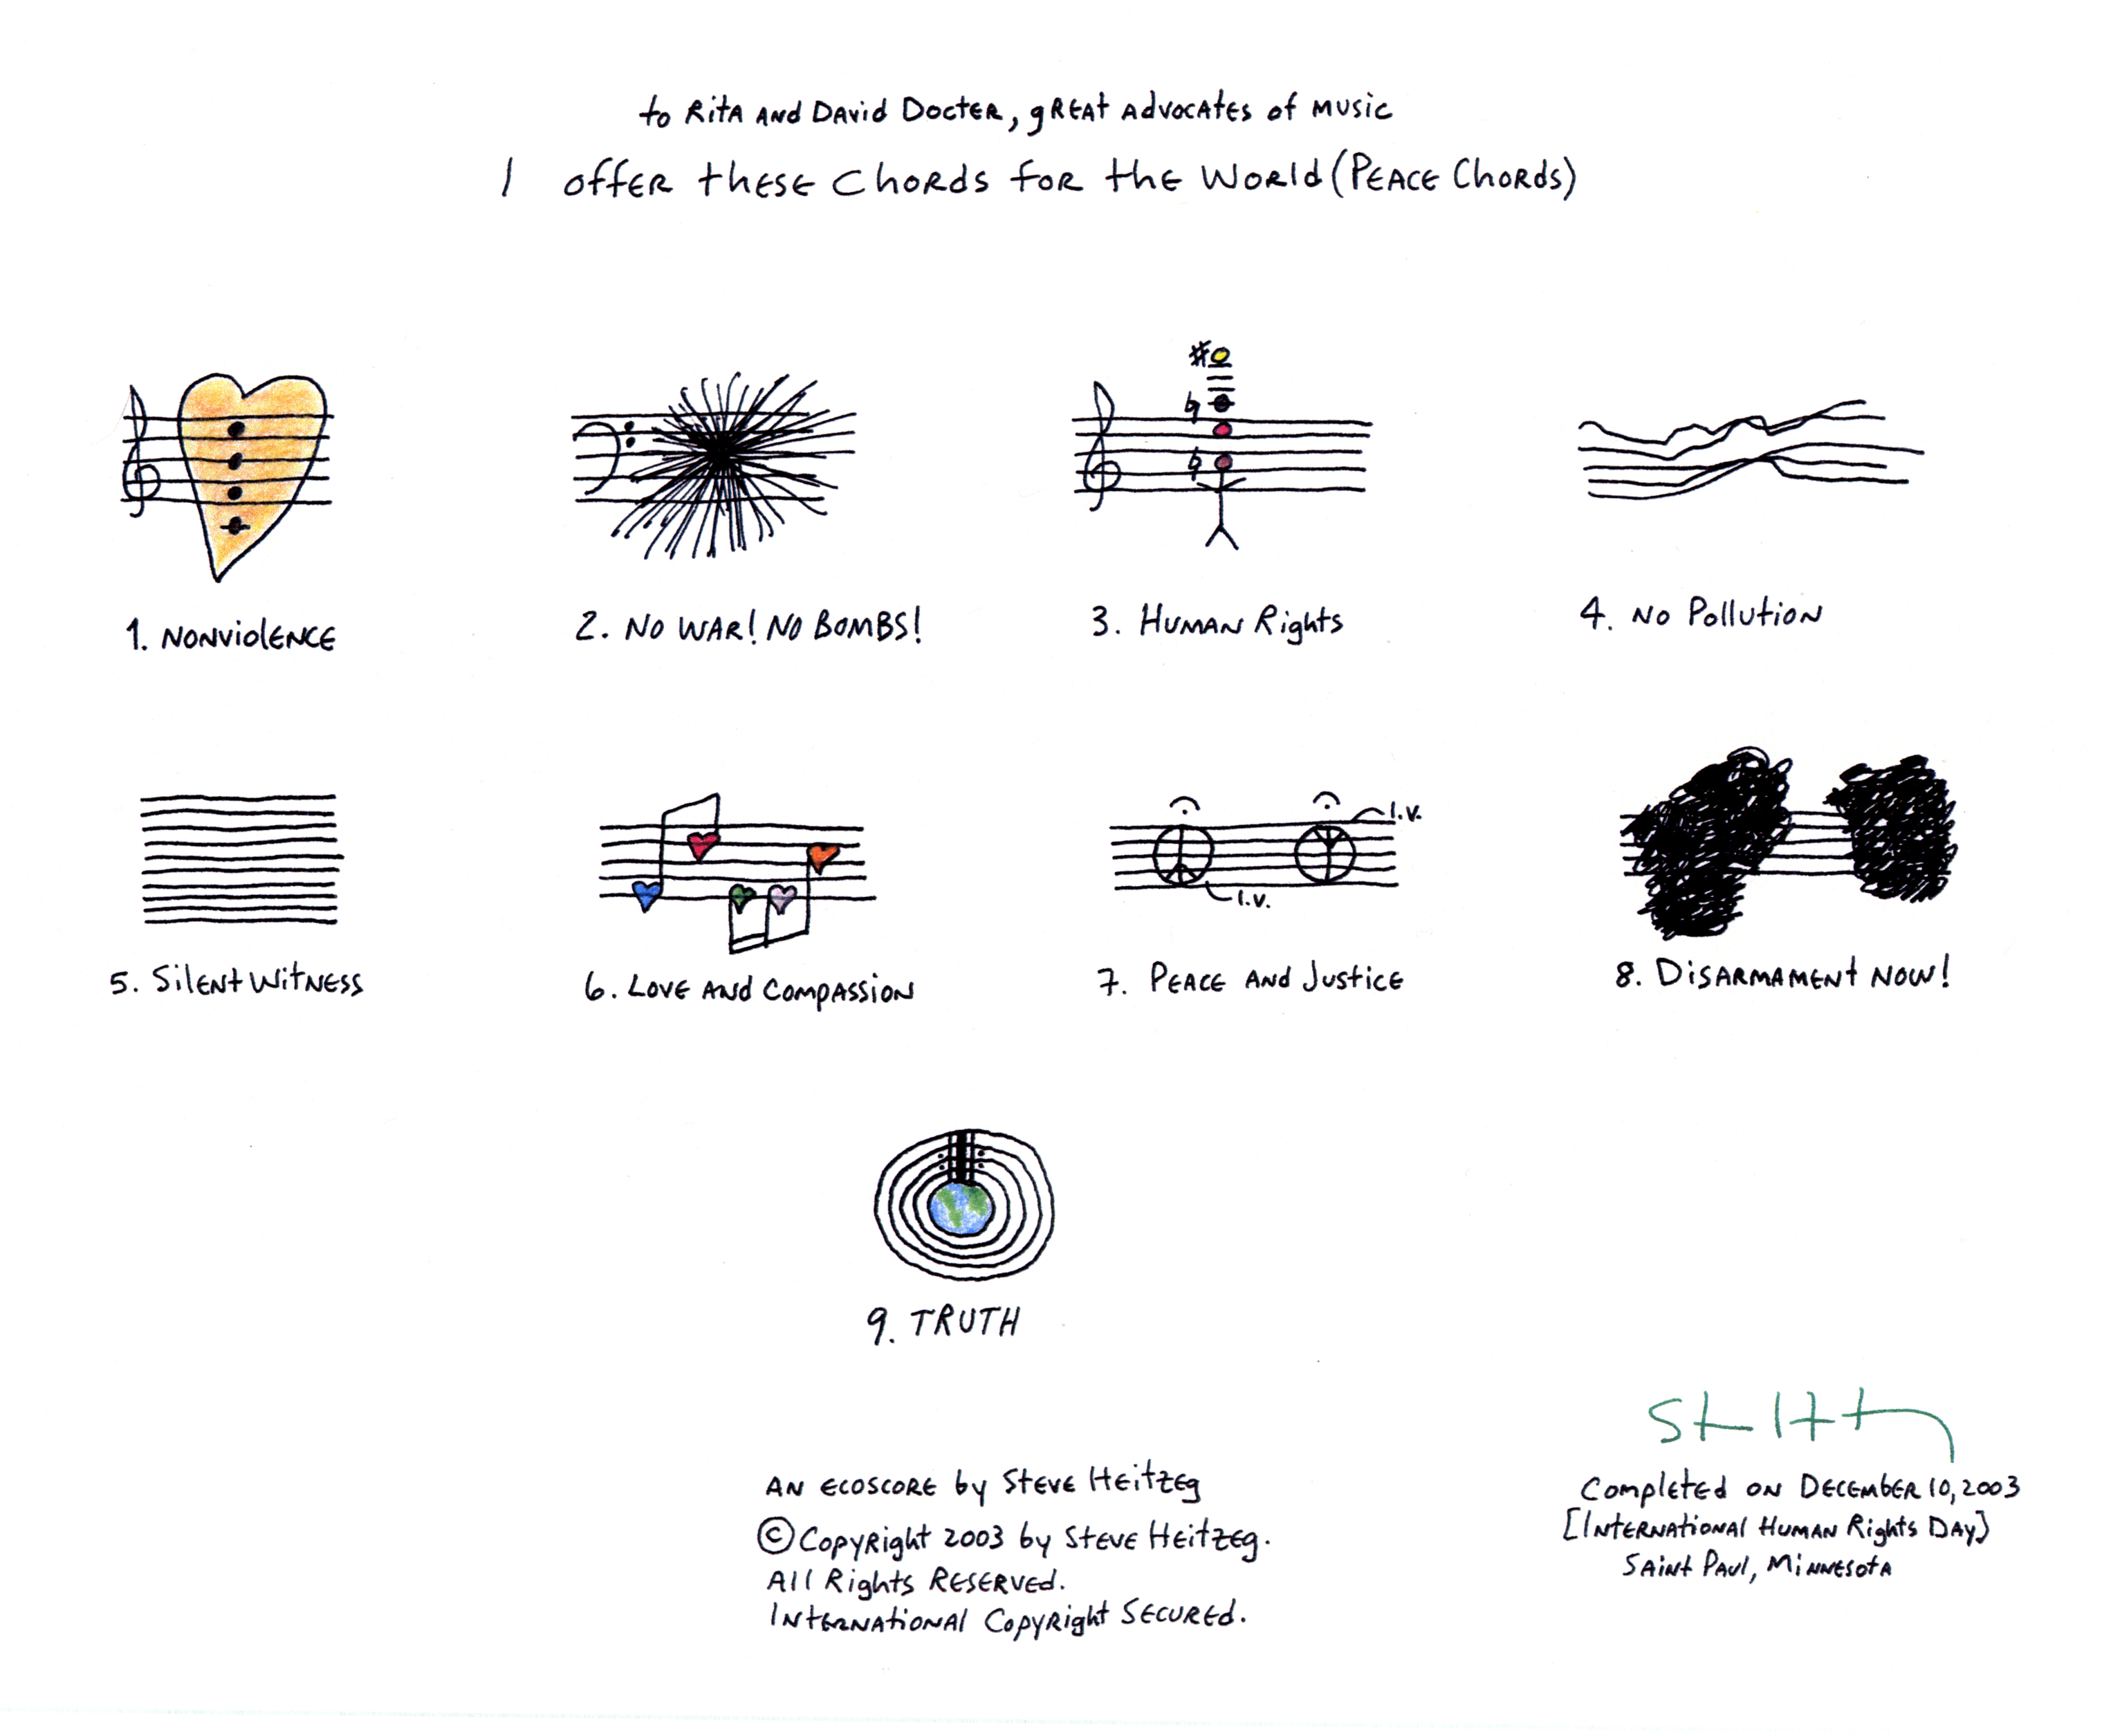 to Rita and David Docter, great advocates of music
I offer these Chords for the World (Peace Chords)
1. Nonviolence
2. No War! No Bombs!
3. Human Rights
4. No Pollution
5. Silent Witness
6. Love and Compassion
l.v.
l.v.
7. Peace and Justice
8. Disarmament Now!
9. TRUTH
An ecoscore by Steve Heitzeg
© Copyright 2003 by Steve Heitzeg.
All Rights Reserved.
International Copyright Secured.
Completed on December 10, 2003
[International Human Rights Day]
Saint Paul, Minnesota